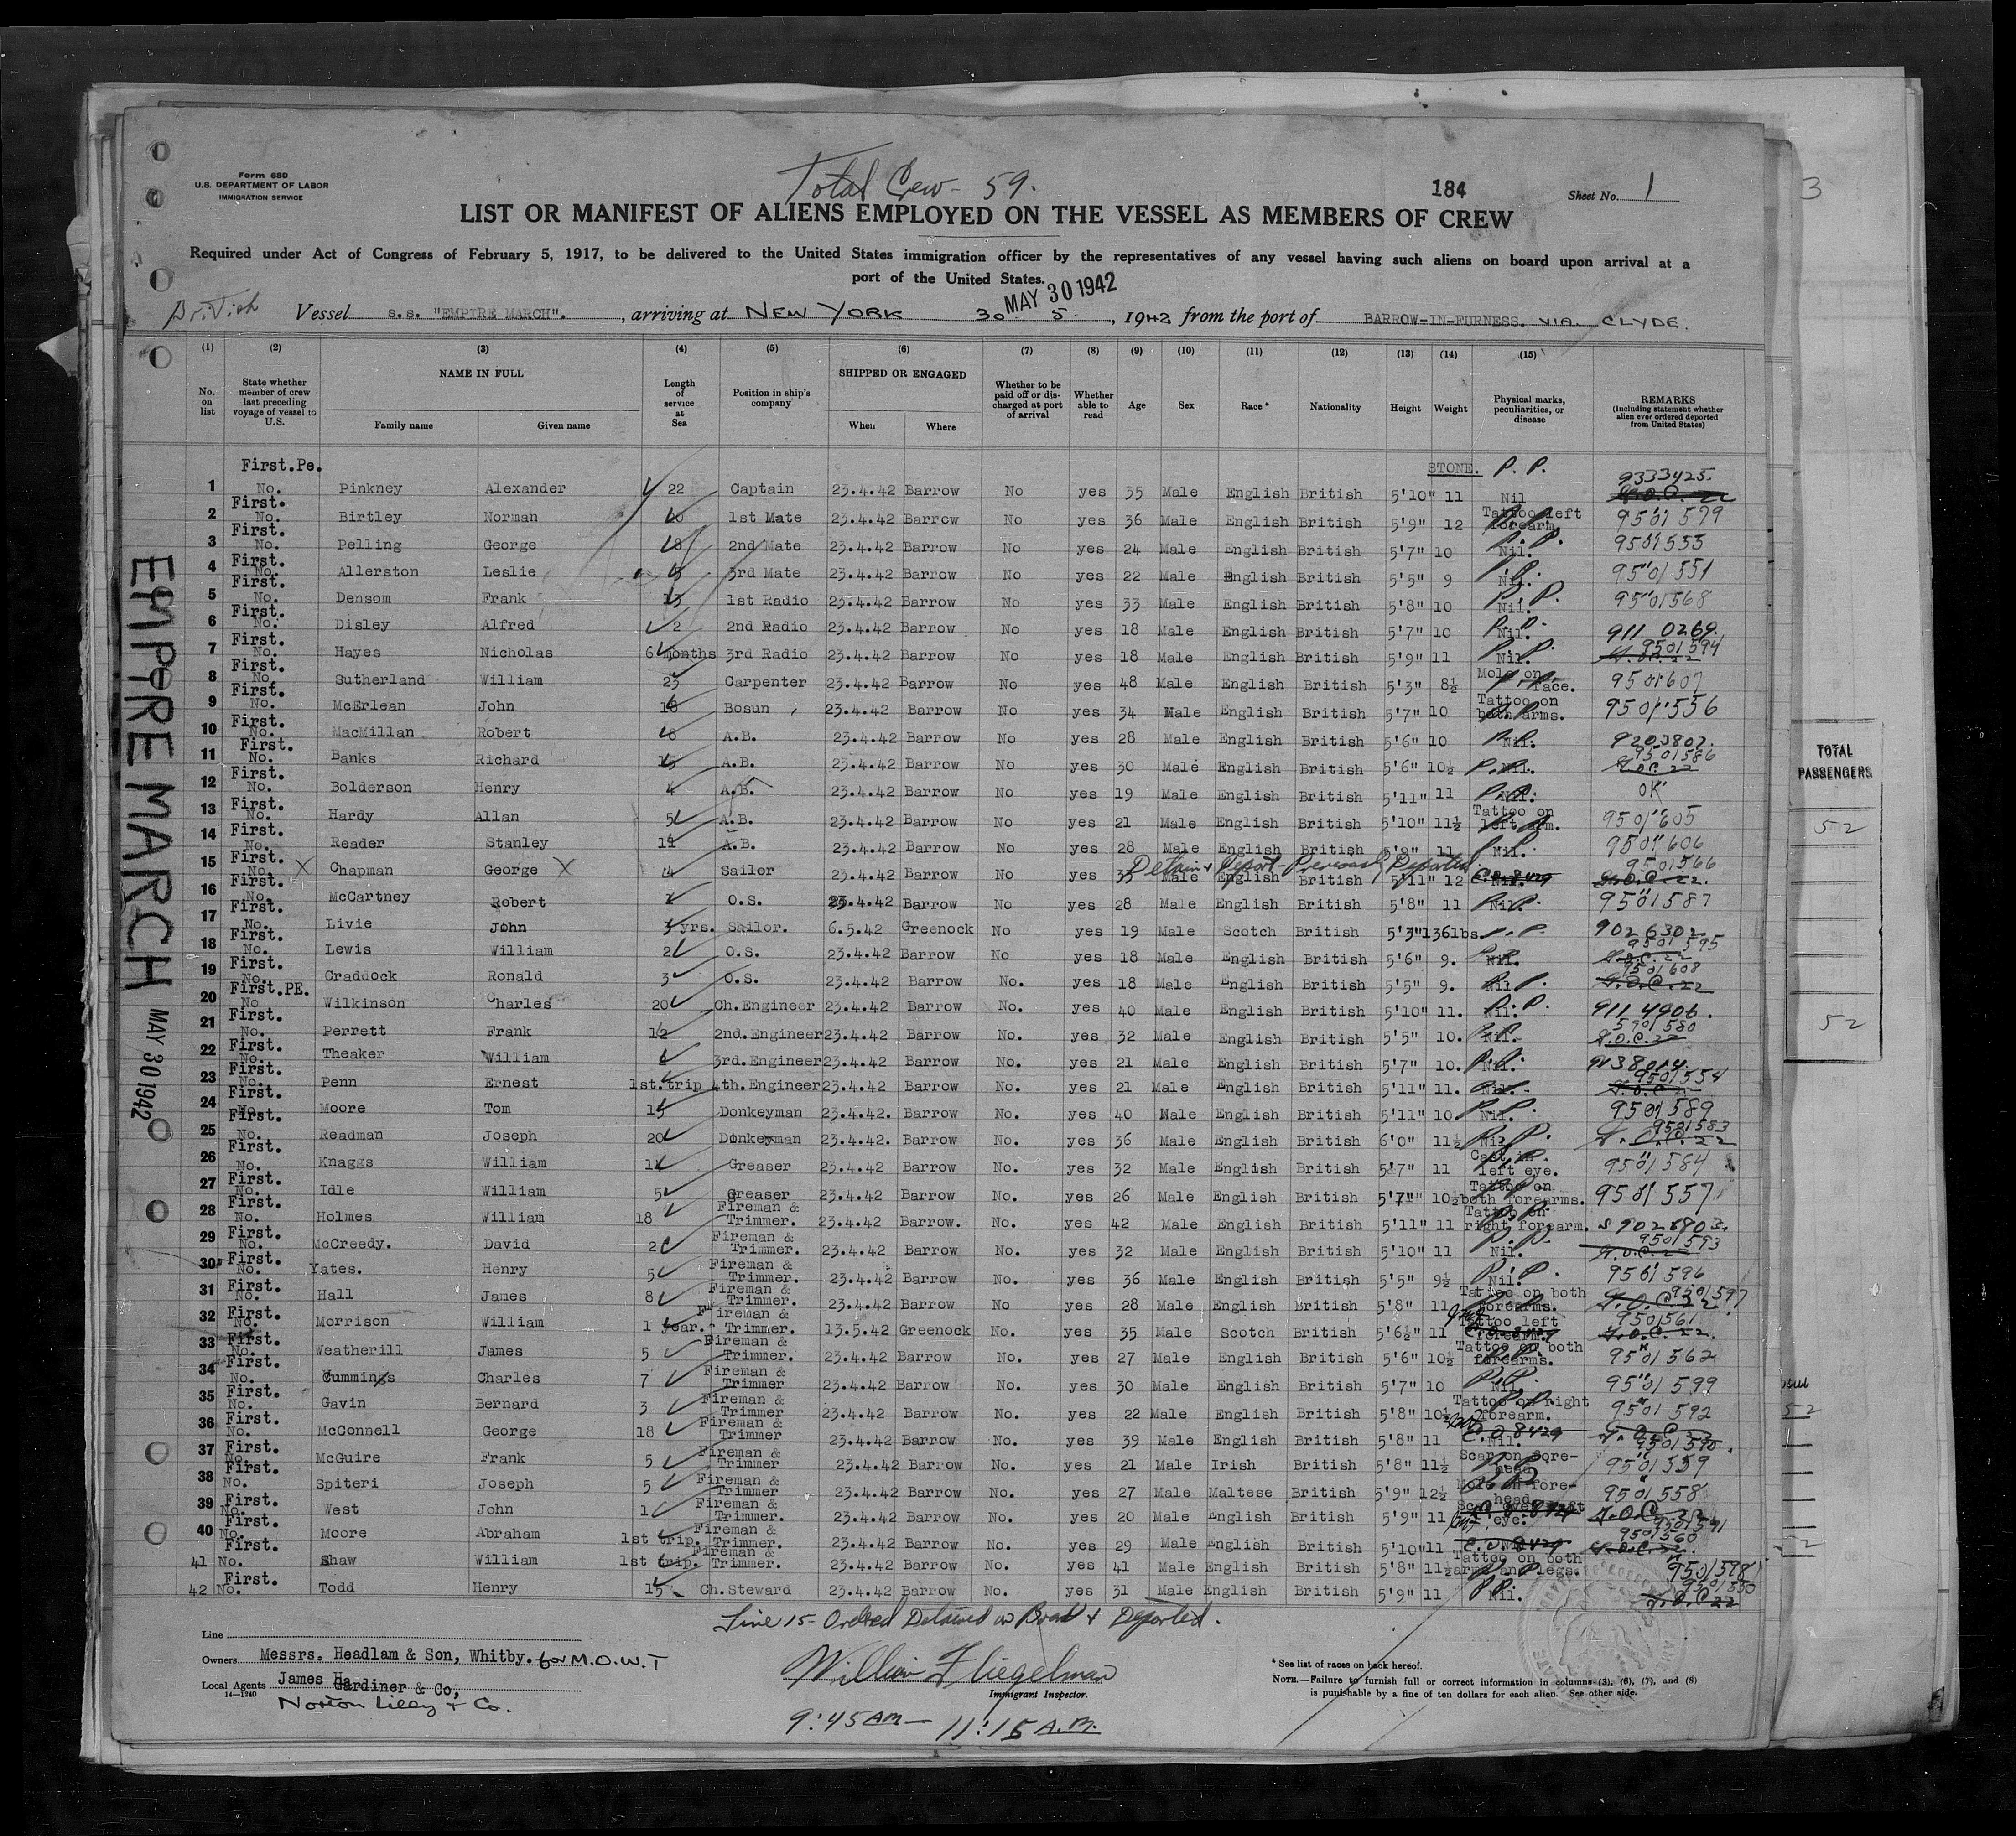 Form 680
U.S. DEPARTMENT OF LABOR
IMMIGRATION SERVICE
Total Crew - 59.
184
Sheet No. 1
3
LIST OR MANIFEST OF ALIENS EMPLOYED ON THE VESSEL AS MEMBERS OF CREW
Required under Act of Congress of February 5, 1917, to be delivered to the United States immigration officer by the representatives of any vessel having such aliens on board upon arrival at a
port of the United States.
MAY 30 1942
British Vessel s.s. "EMPIRE MARCH". , arriving at NEW YORK 30 5 , 1942 from the port of BARROW-IN-FURNESS. VIA. CLYDE.
(1) (2) (3) (4) (5) (6) (7) (8) (9) (10) (11) (12) (13) (14) (15)
No. on list State whether member of crew last preceding voyage of vessel to U.S. NAME IN FULL Family name Given name Length of service at Sea Position in ship's company SHIPPED OR ENGAGED When Where Whether to be paid off or discharged at port of arrival Whether able to read Age Sex Race * Nationality Height Weight Physical marks, peculiarities, or disease REMARKS (Including statement whether alien ever ordered deported from United States)
First.Pe. STONE. P. P.
1 No. Pinkney Alexander 22 Captain 23.4.42 Barrow No yes 35 Male English British 5'10" 11 Nil 9333425.
2 First. No. Birtley Norman 23.4.42 Barrow 1st Mate No yes 36 Male English British 5'9" 12 Tattoo left forearm. 9501 579
3 First. No. Pelling George 8 2nd Mate 23.4.42 Barrow No yes 24 Male English British 5'7" 10 Nil.
4 First. No. Allerston Leslie 3rd Mate 23.4.42 Barrow No yes 22 Male English British 5'5" 9 Nil. 9501 551
5 First. No. Densom Frank 13 1st Radio 23.4.42 Barrow No yes 33 Male English British 5'8" 10 Nil. P.P. 9501568
6 First. No. Disley Alfred 2 2nd Radio 23.4.42 Barrow No yes 18 Male English British 5'7" 10 Nil. 911 0269.
7 First. No. Hayes Nicholas 6 months 3rd Radio 23.4.42 Barrow No yes 18 Male English British 5'9" 11 Nil. 9501594
8 First. No. Sutherland William 23 Carpenter 23.4.42 Barrow No yes 48 Male English British 5'3" 8½ Mole on face. 9501607
9 First. No. McErlean John 18 Bosun 23.4.42 Barrow No yes 34 Male English British 5'7" 10 Tattoo on both arms. 9501556
10 First. No. MacMillan Robert 8 A.B. 23.4.42 Barrow No yes 28 Male English British 5'6" 10 Nil. 9203802.
11 First. No. Banks Richard 15 A.B. 23.4.42 Barrow No yes 30 Male English British 5'6" 10½ Nil. 9501586
12 First. No. Bolderson Henry 4 A.B. 23.4.42 Barrow No yes 19 Male English British 5'11" 11 Nil. OK
13 First. No. Hardy Allan 5 A.B. 23.4.42 Barrow No yes 21 Male English British 5'10" 11½ Tattoo on left arm. 9501605
14 First. No. Reader Stanley 14 A.B. 23.4.42 Barrow No yes 28 Male English British 5'8" 11 Nil. 9501606
Detain & Deport - Previously Deported.
15 First. No. X Chapman George X 4 Sailor 23.4.42 Barrow No yes Male English British 5'11" 12 Nil. 9501566
16 First. No. McCartney Robert 23.4.42 Barrow O.S. No yes 28 Male English British 5'8" 11 Nil. 9501587
17 First. No. Livie John 3 yrs. Sailor. 6.5.42 Greenock No yes 19 Male Scotch British 5'3" 136lbs. 9026302
18 First. No. Lewis William 2 O.S. 23.4.42 Barrow No yes 18 Male English British 5'6" 9. Nil. 9501595
19 First. No. Craddock Ronald 3 O.S. 23.4.42 Barrow No. yes 18 Male English British 5'5" 9. Nil. 9501608
20 First.PE. No Wilkinson Charles 20 Ch.Engineer 23.4.42 Barrow No. yes 40 Male English British 5'10" 11. Nil. 911 4906.
21 First. No. Perrett Frank 12 2nd.Engineer 23.4.42 Barrow No. yes 32 Male English British 5'5" 10. Nil. 5901580
22 First. No. Theaker William 3rd.Engineer 23.4.42 Barrow No. yes 21 Male English British 5'7" 10. Nil.
23 First. No. Penn Ernest 1st.trip 4th.Engineer 23.4.42 Barrow No. yes 21 Male English British 5'11" 11. Nil. 9501554
24 First. No. Moore Tom 15 Donkeyman 23.4.42. Barrow No. yes 40 Male English British 5'11" 10. Nil. 9501589
25 First. No. Readman Joseph 20 Donkeyman 23.4.42. Barrow No. yes 36 Male English British 6'0" 11½ Nil. 9501583
26 First. No. Knaggs William Greaser 23.4.42 Barrow No. yes 32 Male English British 5'7" 11 Cast in left eye. 9501584
27 First. No. Idle William 5 Greaser 23.4.42 Barrow No. yes 26 Male English British 5'7" 10½ Tattoo on both forearms. 9501557
28 First. No. Holmes William 18 Fireman & Trimmer. 23.4.42 Barrow. No. yes 42 Male English British 5'11" 11 Tattoo on right forearm.
29 First. No. McCreedy. David Fireman & Trimmer. 23.4.42 Barrow No. yes 32 Male English British 5'10" 11 Nil. 9501593
30 First. No. Yates. Henry 5 Fireman & Trimmer. 23.4.42 Barrow No. yes 36 Male English British 5'5" 9½ Nil. 9501596
31 First. No. Hall James 8 Fireman & Trimmer. 23.4.42 Barrow No yes 28 Male English British 5'8" 11 Tattoo on both forearms. 9501597
32 First. No. Morrison William 1 year. Fireman & Trimmer. 13.5.42 Greenock No. yes 35 Male Scotch British 5'6½" 11 Tattoo left forearm. 9501561
33 First. No. Weatherill James 5 Fireman & Trimmer. 23.4.42 Barrow No. yes 27 Male English British 5'6" 10½ Tattoo on both forearms. 9501562
34 First. No. Cummings Charles 7 Fireman & Trimmer 23.4.42 Barrow No. yes 30 Male English British 5'7" 10 Nil. 9501599
35 First. No. Gavin Bernard 3 Fireman & Trimmer 23.4.42 Barrow No. yes 22 Male English British 5'8" 10½ Tattoo on right forearm. 9501592
36 First. No. McConnell George 18 Fireman & Trimmer 23.4.42 Barrow No. yes 39 Male English British 5'8" 11 Nil. 9501590.
37 First. No. McGuire Frank 5 Fireman & Trimmer 23.4.42 Barrow No. yes 21 Male Irish British 5'8" 11½ Scar on forehead. 9501559
38 First. No. Spiteri Joseph 5 Fireman & Trimmer 23.4.42 Barrow No. yes 27 Male Maltese British 5'9" 12½ Mole on forehead. 9501558
39 First. No. West John 1 Fireman & Trimmer. 23.4.42 Barrow No. yes 20 Male English British 5'9" 11 eye. 9501591
40 First. No. Moore Abraham 1st trip. Fireman & Trimmer. 23.4.42 Barrow No. yes 29 Male English British 5'10" 11 9501560
41 First. No. Shaw William 1st trip. Fireman & Trimmer. 23.4.42 Barrow No. yes 41 Male English British 5'8" 11½ Tattoo on both arms and legs. 9501598
42 First. No. Todd Henry 15 Ch.Steward 23.4.42 Barrow No. yes 31 Male English British 5'9" 11 Nil. 9501550
Line 15 - Ordered Detained on Board & Deported.
Line
Owners Messrs. Headlam & Son, Whitby. for M.O.W.T
Local Agents James Gardiner & Co,
14—1240
Norton Lilly & Co.
William Fliegelman
Immigrant Inspector.
9:45 AM — 11:15 A.M.
* See list of races on back hereof.
NOTE.—Failure to furnish full or correct information in columns (3), (6), (7), and (8)
is punishable by a fine of ten dollars for each alien. See other side.
EMPIRE MARCH
MAY 30 1942
TOTAL
PASSENGERS
52
52
52